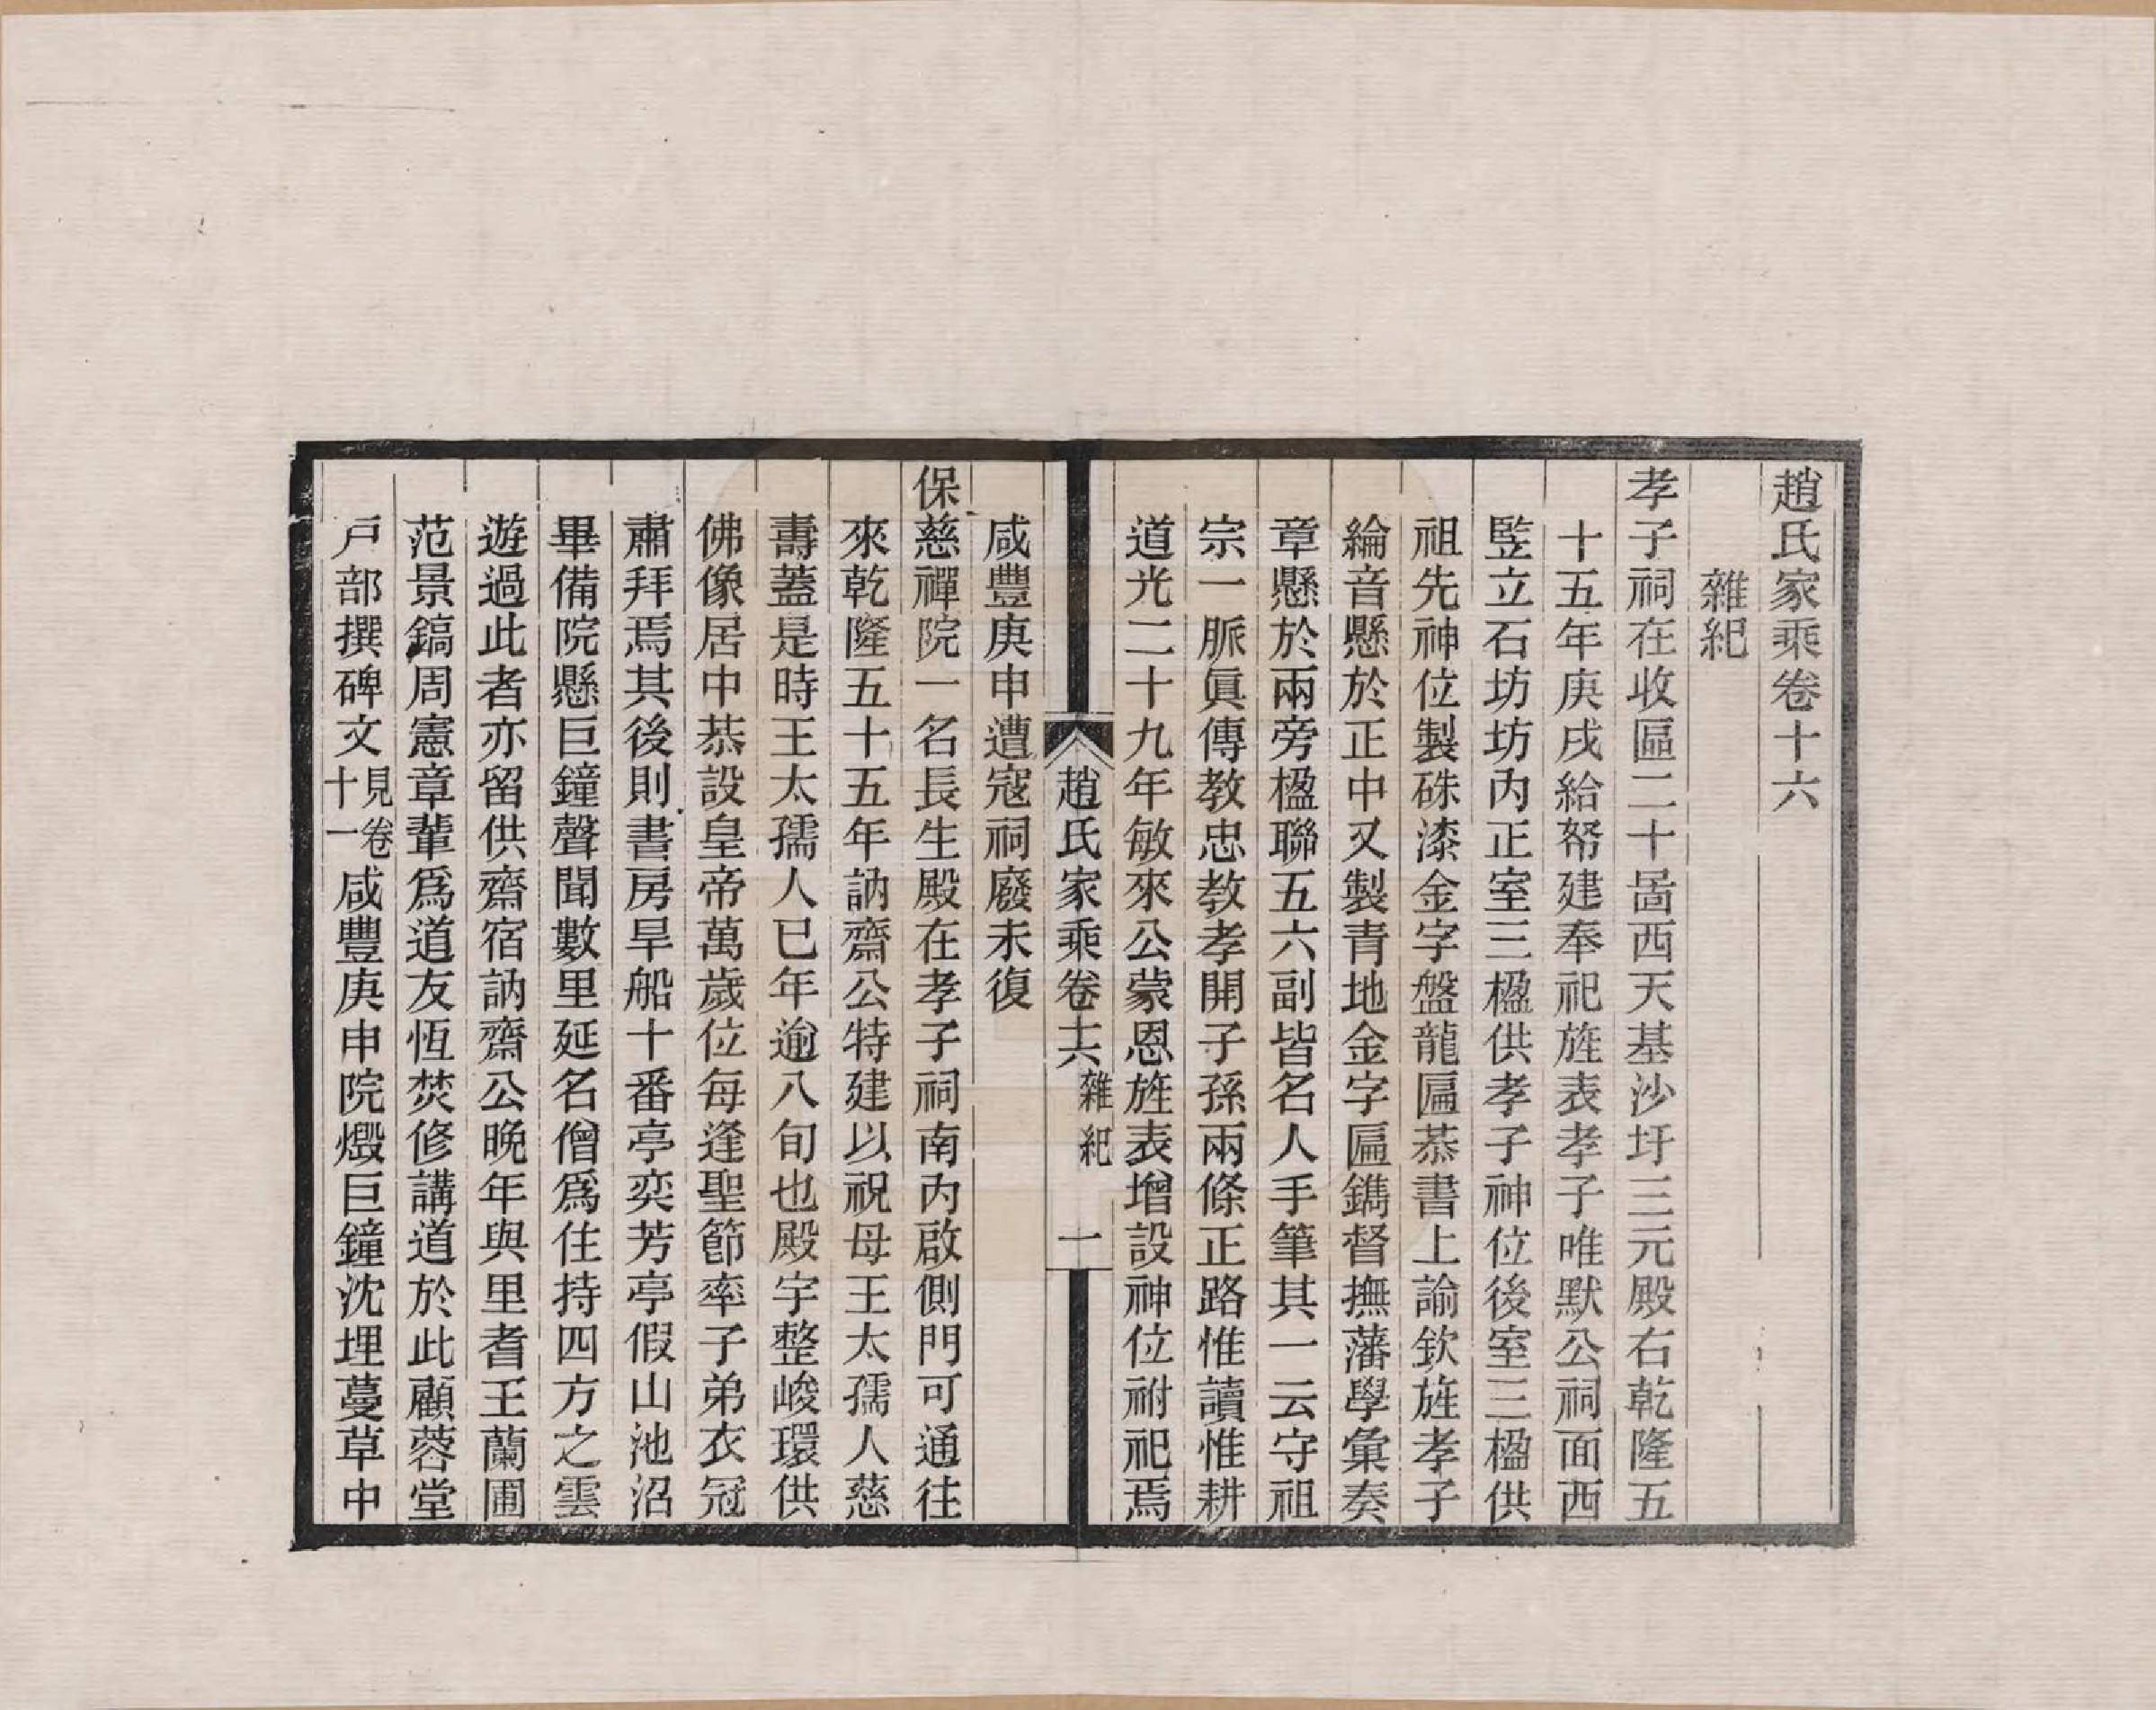 趙氏家乘卷十六
雜紀
孝子祠在收區二十啚西天基沙圩三元殿右乾隆五
十五年庚戌給帑建奉祀旌表孝子唯默公祠面西
竪立石坊坊内正室三楹供孝子神位後室三楹供
祖先神位製硃漆金字盤龍匾恭書上諭欽旌孝子
綸音懸於正中又製青地金字匾鐫督撫藩學彙奏
章懸於兩旁楹聯五六副皆名人手筆其一云守祖
宗一脈眞傳教忠教孝開子孫兩條正路惟讀惟耕
道光二十九年敏來公蒙恩旌表增設神位祔祀焉
趙氏家乘卷十六 雜紀 一
咸豐庚申遭寇祠廢未復
保慈禪院一名長生殿在孝子祠南内啟側門可通往
來乾隆五十五年訥齋公特建以祝母王太孺人慈
壽蓋是時王太孺人已年逾八旬也殿宇整峻環供
佛像居中恭設皇帝萬歲位每逢聖節率子弟衣冠
肅拜焉其後則書房旱船十番亭奕芳亭假山池沼
畢備院懸巨鐘聲聞數里延名僧爲住持四方之雲
遊過此者亦留供齋宿訥齋公晚年與里耆王蘭圃
范景鎬周憲章輩爲道友恆焚修講道於此顧蓉堂
戶部撰碑文見卷十一咸豐庚申院燬巨鐘沈埋蔓草中